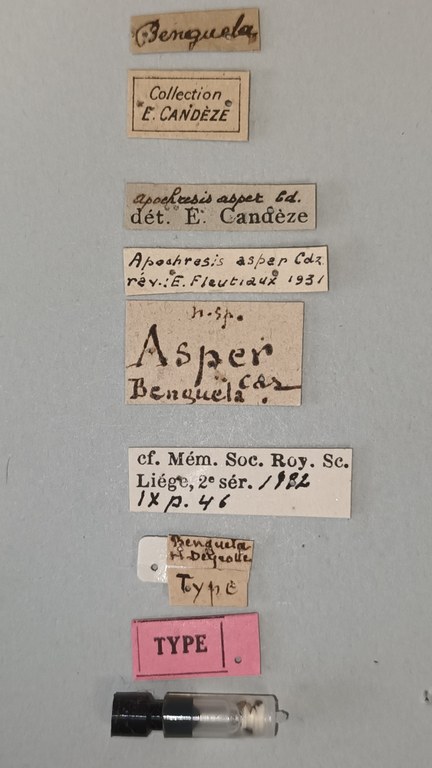 Benguela
Collection
E. CANDÈZE
Apochresis asper Cd.
dét. E. Candèze
Apochresis asper Cdz
rév.: E. Fleutiaux 1931
n. sp.
Asper
Cdz
Benguela.
cf. Mém. Soc. Roy. Sc.
Liége, 2e sér. 1882
IX p. 46
Benguela
H. Deyrolle
Type
TYPE